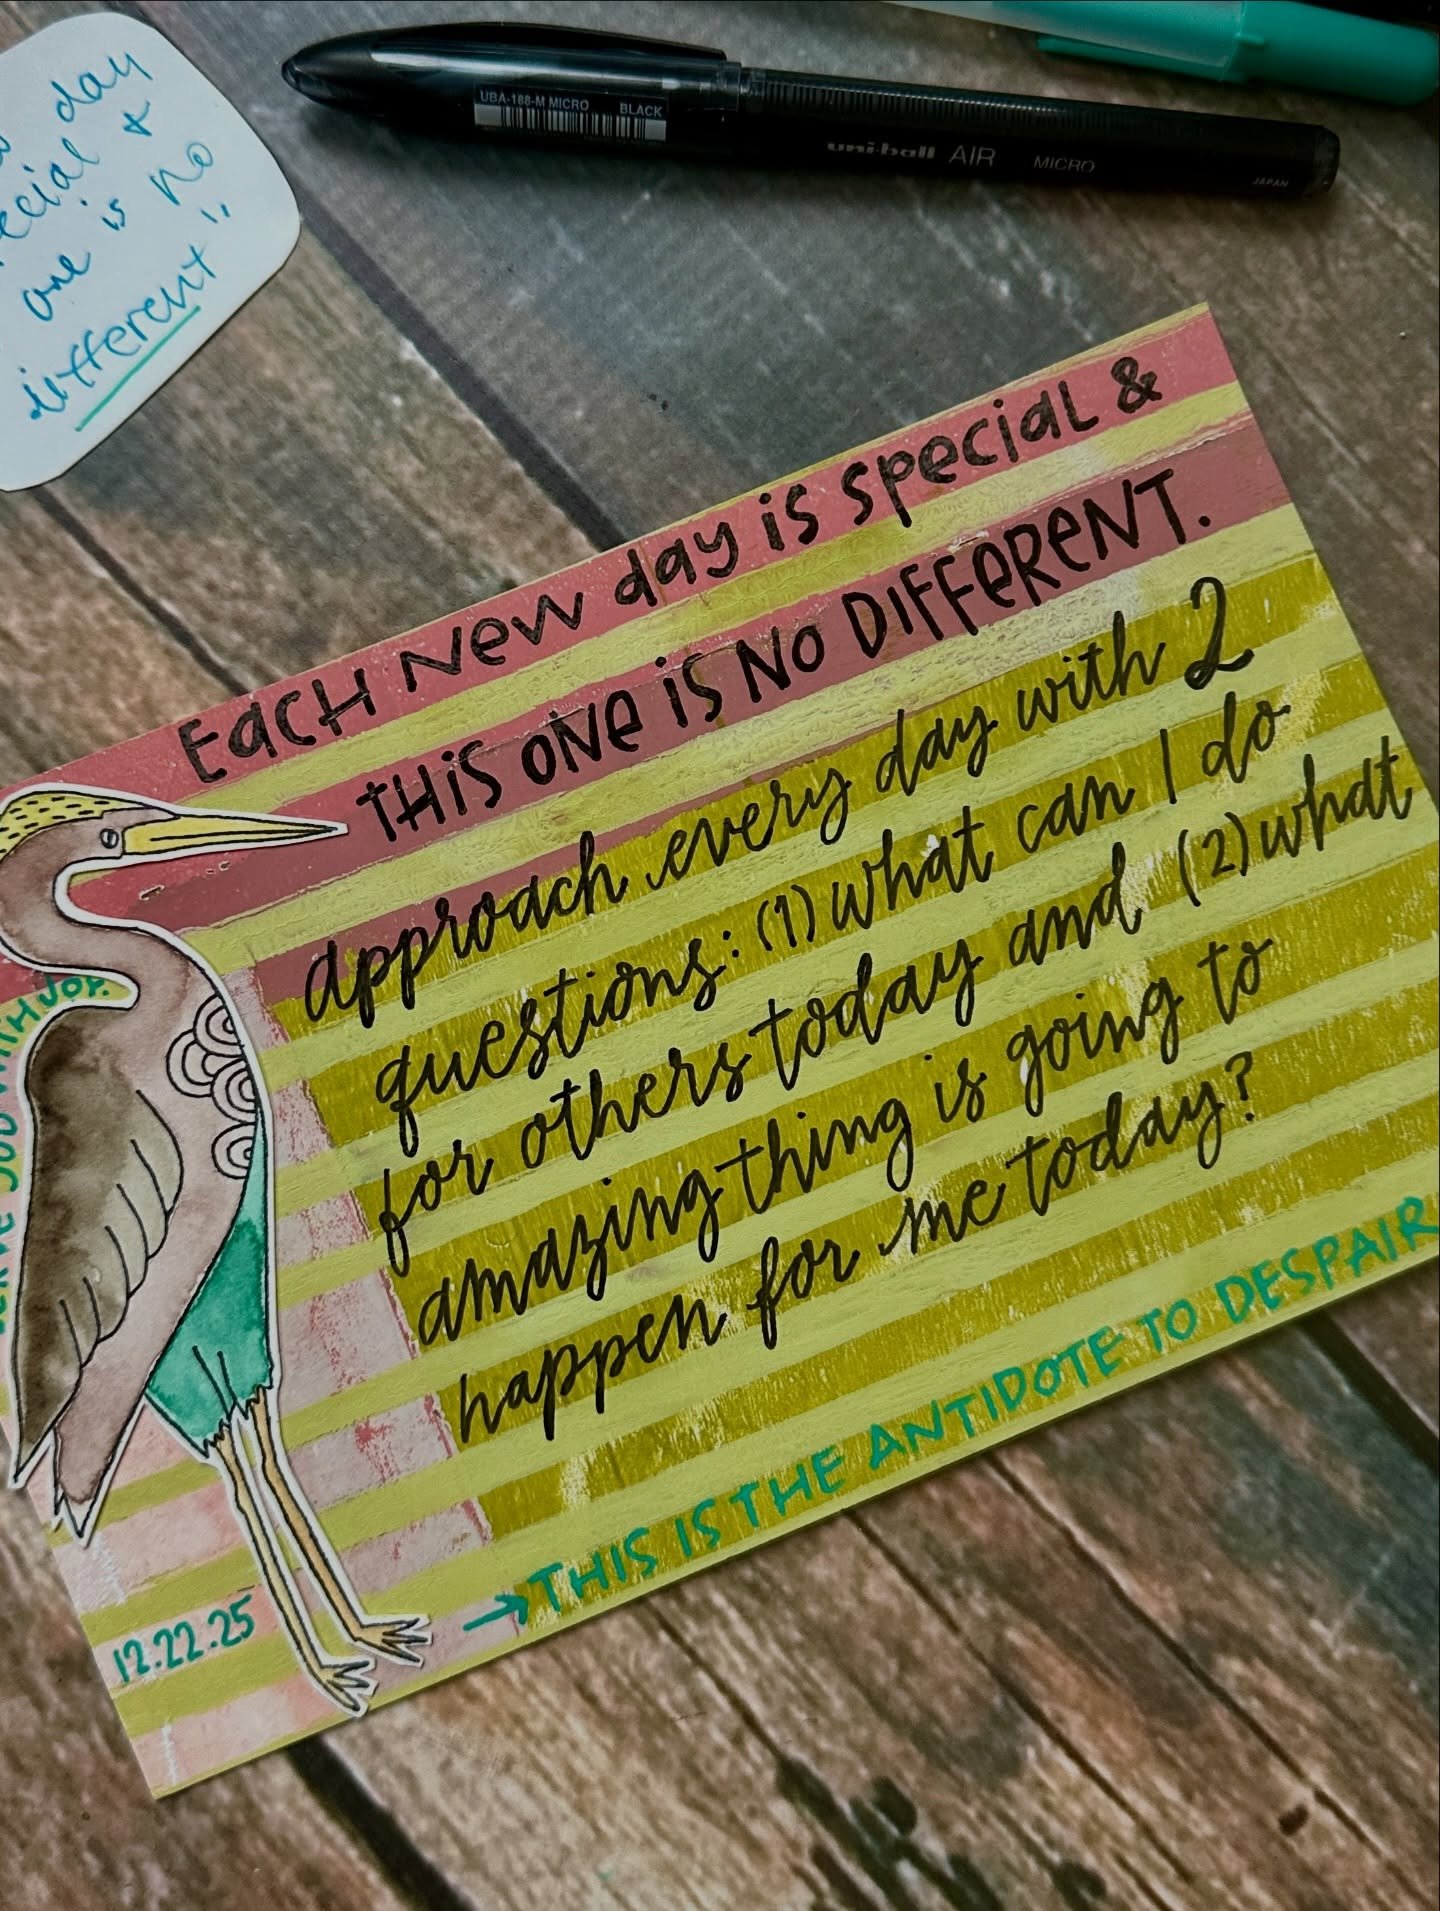 day
special &
one is no
different!
UBA-188-M MICRO BLACK
uni-ball AIR MICRO
JAPAN
EACH NEW day is special &
THIS ONE is NO DIFFERENT.
approach every day with 2
questions: (1) what can I do
for others today and (2) what
amazing thing is going to
happen for me today?
→ THIS IS THE ANTIDOTE TO DESPAIR
WITH JOY.
12.22.25